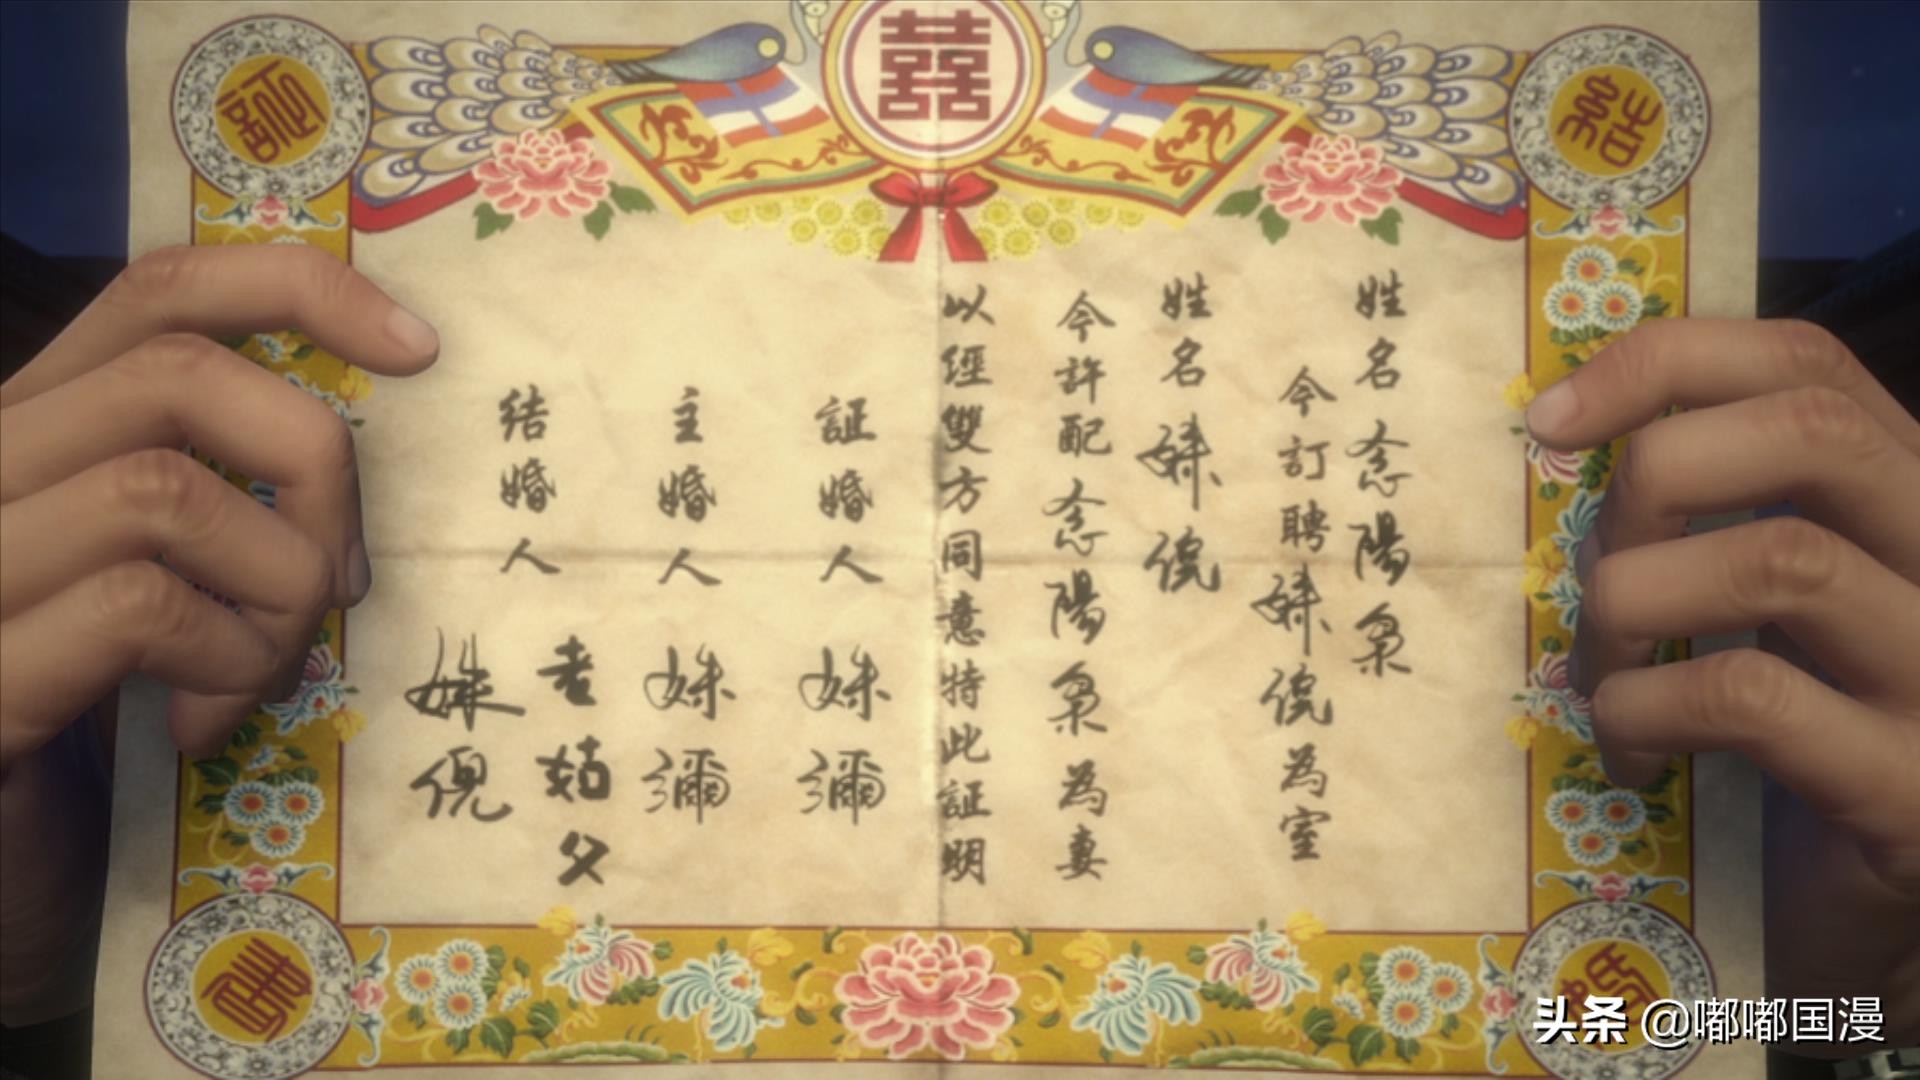 囍
結
婚
證
書
姓名 念陽梟
今訂聘姝倪為室
姓名 姝倪
今許配念陽梟為妻
以經雙方同意特此証明
証婚人 姝彌
主婚人 姝彌
结婚人 老姑父
姝倪
头条 @嘟嘟国漫